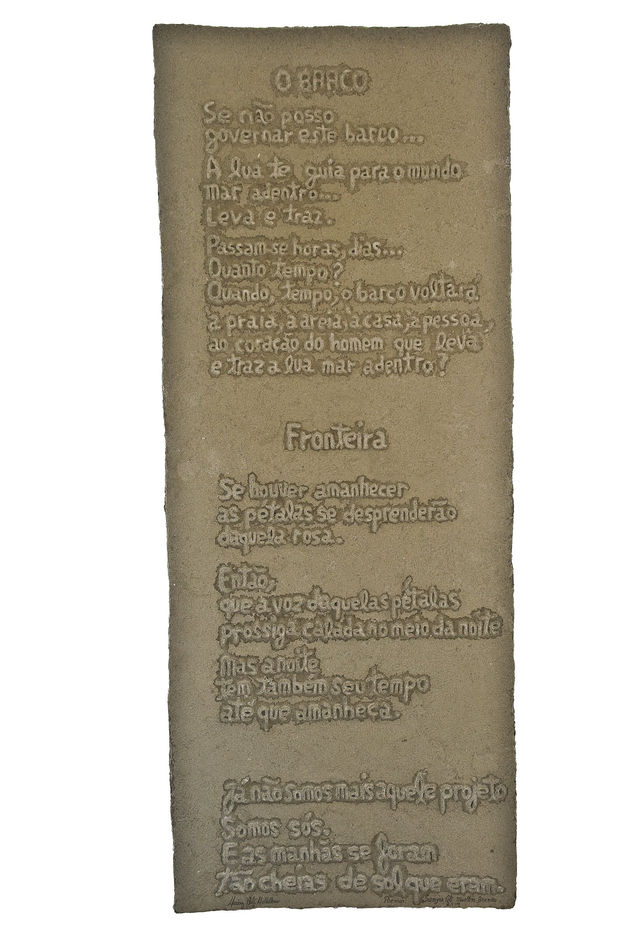 O BARCO
Se não posso
governar este barco...
A lua te guia para o mundo
mar adentro...
Leva e traz.
Passam-se horas, dias...
Quanto tempo?
Quando, tempo, o barco voltará
à praia, à areia, à casa, à pessoa,
ao coração do homem que leva
e traz a lua mar adentro?
Fronteira
Se houver amanhecer
as pétalas se desprenderão
daquela rosa.
Então,
que a voz daquelas pétalas
prossiga calada no meio da noite
Mas a noite
tem também seu tempo
até que amanheça.
Já não somos mais aquele projeto
Somos sós.
E as manhãs se foram
tão cheias de sol que eram.